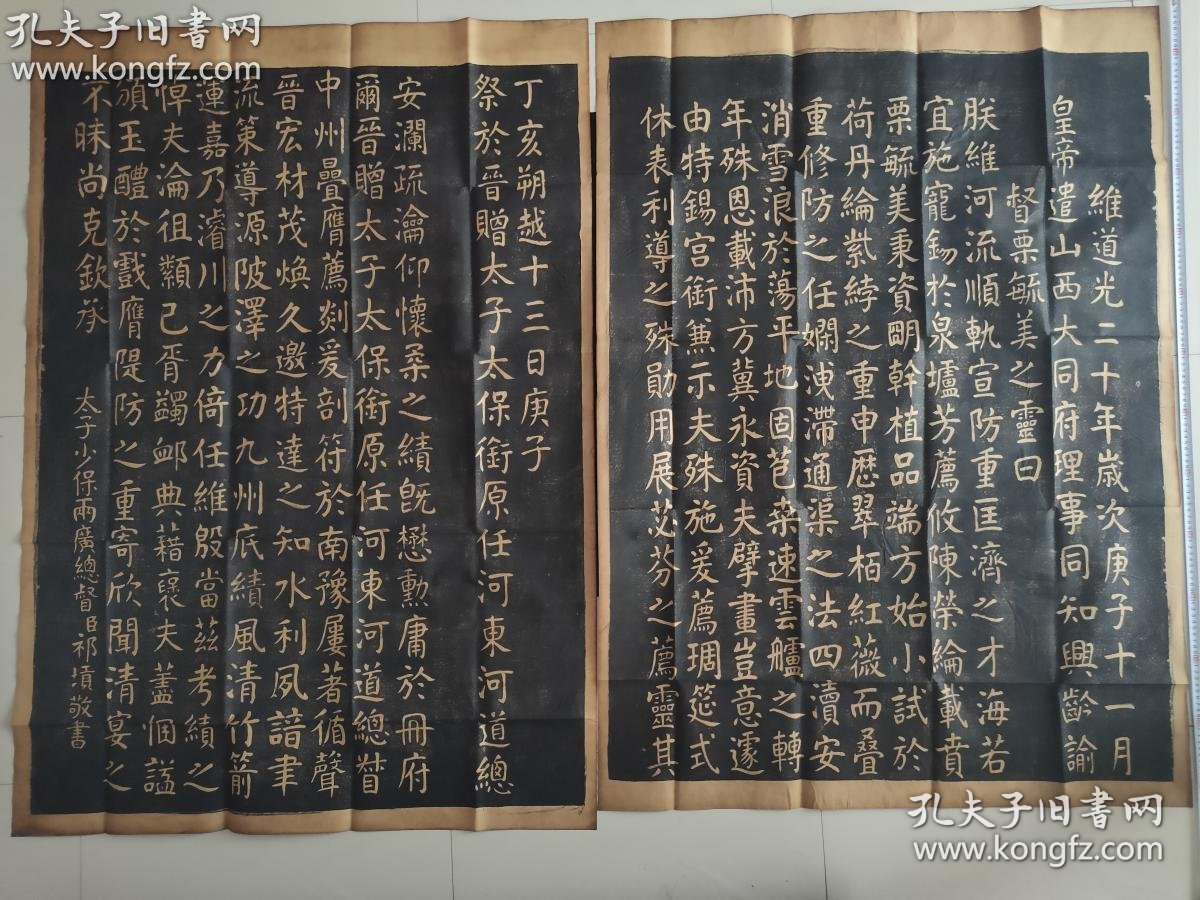 維道光二十年歲次庚子十一月
皇帝遣山西大同府理事同知興齡諭
督栗毓美之靈曰
朕維河流順軌宣防重匡濟之才海若
宜施寵錫於泉壚芳薦攸陳榮綸載賁
栗毓美秉資明幹植品端方始小試於
荷丹綸紫綍之重申歷翠栢紅薇而疊
重修防之任嫻洩滯通渠之法四瀆安
消雪浪於蕩平地固苞桑速雲艫之轉
年殊恩載沛方冀永資夫擘畫豈意遽
由特錫宮銜兼示夫殊施爰薦琱筵式
休表利導之殊勛用展苾芬之薦靈其
丁亥朔越十三日庚子
祭於晉贈太子太保銜原任河東河道總
安瀾疏瀹仰懷柔之績旣懋勳庸於冊府
爾晉贈太子太保銜原任河東河道總督
中州疊膺薦剡爰剖符於南豫屢著循聲
晉宏材茂煥久邀特達之知水利夙諳聿
流策導源陂澤之功九州底績風清竹箭
運嘉乃濬川之力倚任維殷當茲考績之
悼夫淪徂纇已胥蠲卹典藉褒夫藎悃諡
頒玉醴於戲膺隄防之重寄欣聞清宴之
不昧尚克欽承
太子少保兩廣總督臣祁𡎴敬書
孔夫子旧书网
www.kongfz.com
孔夫子旧书网
www.kongfz.com